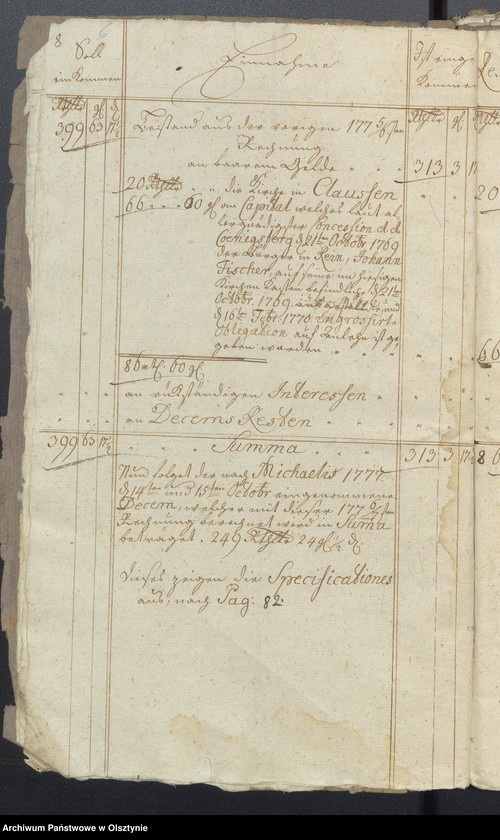 8
Soll
einkommen
Einnahme
Ist einge
kommen
Rthlr gl. d.
Rthlr gl.
399 63 17½
Bestand aus der vorigen 177 5/6sten
Rechnung
an baarem Gelde
313 3
20 Rthlr die Kirche in Claussen
66 60 gl an Capital welches laut al
lergnädigster Concession d. d.
Koenigsberg d 21ten Octobr 1769
der Bürger in Rein, Johann
Fischer, auf seine im hiesigen
Kirchen Kasten befindliche d 21ten
Octobr. 1769 und
d 16ten Febr. 1770. ingrossirte
Obligation auf Anlehn ist ge
geben worden
86 rtl. 60 gl.
an rükständigen Interessen
an Decems Resten
399 63 17½
Summa
313 3 17½
Nun folget der nach Michaelis 1777.
d 14ten und 15ten Octobr eingenommene
Decem, welcher mit dieser 177 6/7sten
Rechnung berechnet werd in Suma
beträget. 249 Rthlr 24 gl ½ d.
Dieses zeigen die Specificationes
aus, nach Pag: 82.
20
66
8
Archiwum Państwowe w Olsztynie